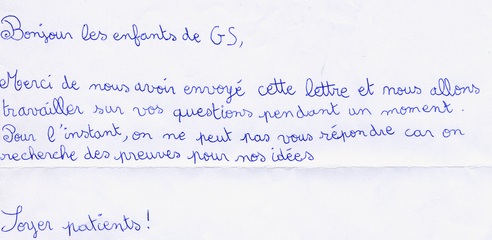 Bonjour les enfants de GS,
Merci de nous avoir envoyé cette lettre et nous allons
travailler sur vos questions pendant un moment.
Pour l'instant, on ne peut pas vous répondre car on
recherche des preuves pour nos idées
Soyer patients!